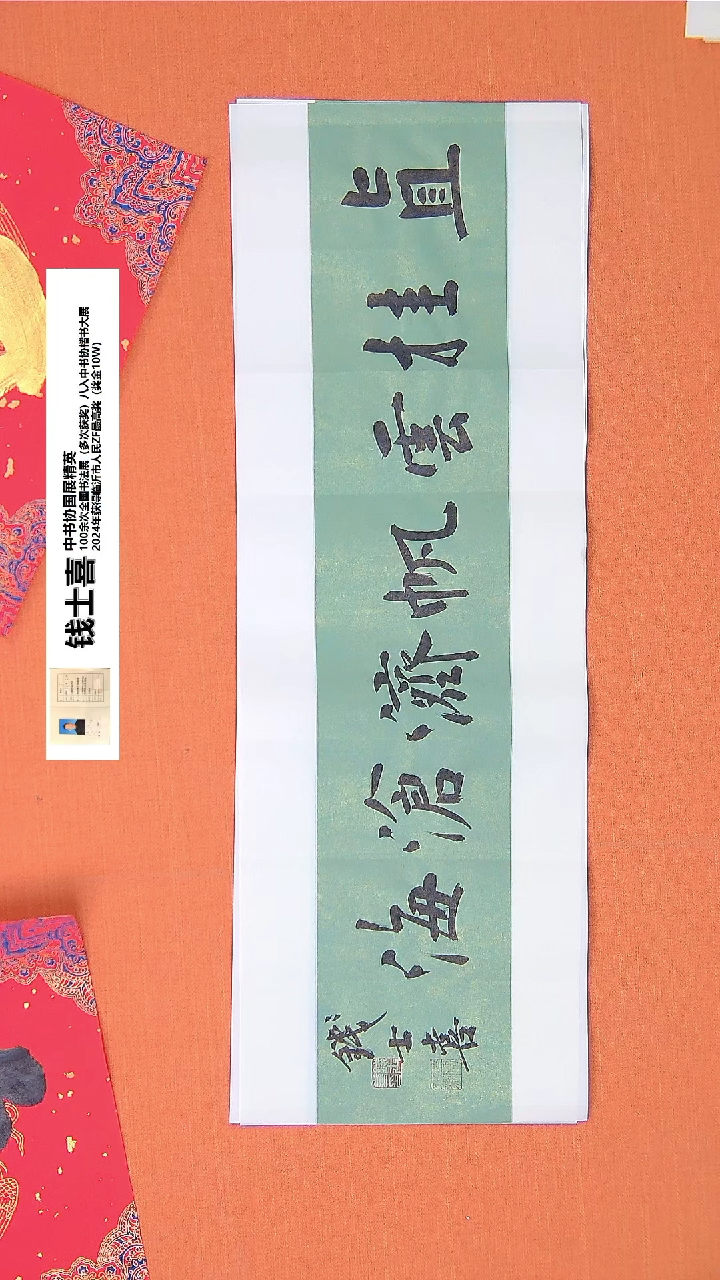 直挂雲帆濟滄海
錢士喜
钱士喜
中书协国展精英
100余次全国书法展（多次获奖）八入中书协楷书大展
2024年获得临沂市人民ZF最高奖（奖金10W）